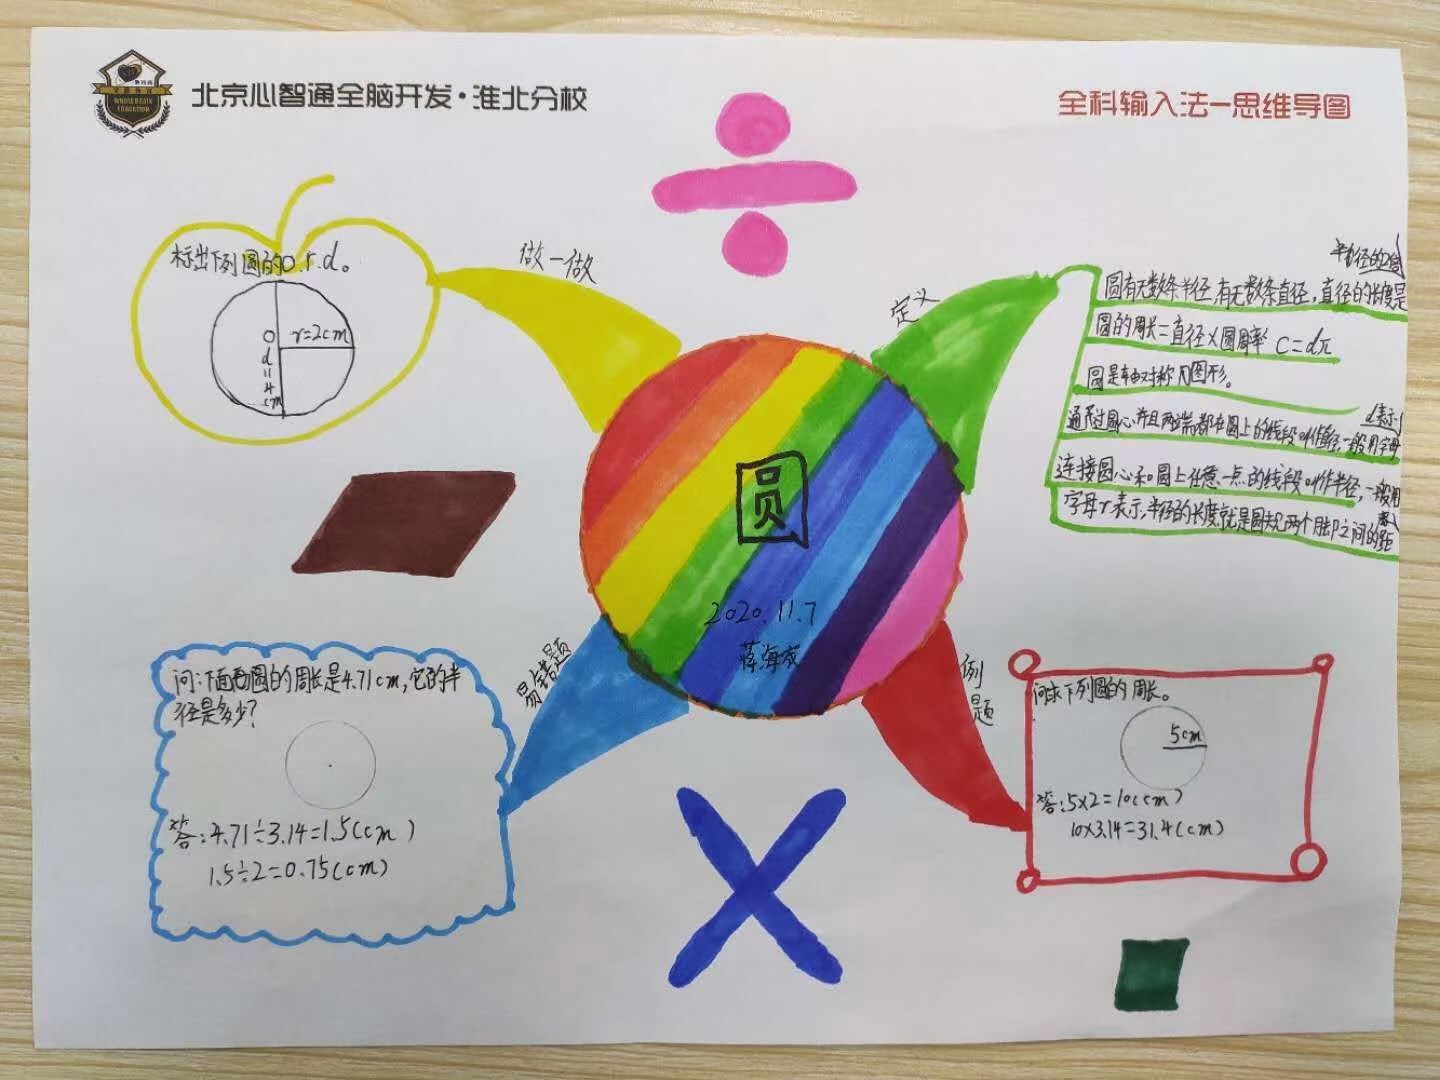 北京心智通全脑开发·淮北分校
全科输入法—思维导图
做一做
标出下列圆的o.r.d。
O
r=2cm
d=4cm
定义
半径的2倍
圆有无数条半径,有无数条直径,直径的长度是
圆的周长=直径×圆周率 C=dπ
圆是轴对称图形。
d表示
通过圆心并且两端都在圆上的线段叫作直径,一般用字母
连接圆心和圆上任意一点的线段叫作半径,一般用
字母r表示,半径的长度就是圆规两个脚之间的距
圆
2020.11.7
易错题
问:下面圆的周长是4.71cm,它的半
径是多少?
答:4.71÷3.14=1.5(cm)
1.5÷2=0.75(cm)
例题
问:求下列圆的周长。
5cm
答:5×2=10(cm)
10×3.14=31.4(cm)